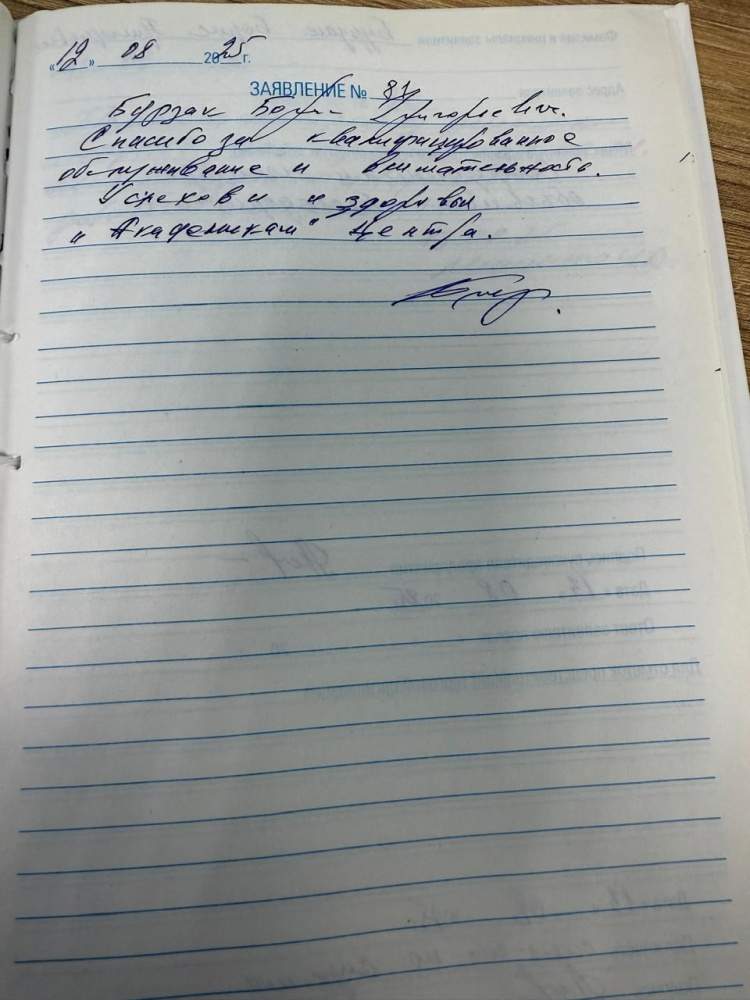 «12» 08 2025 г.
ЗАЯВЛЕНИЕ № 81
Бурзак Борис Григорьевич.
Спасибо за квалифицированное
обслуживание и внимательность.
Успехов и и здоровья
"Академикам" центра.